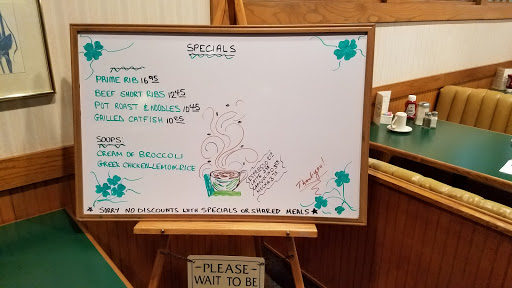 SPECIALS
PRIME RIB 16.95
BEEF SHORT RIBS 12.45
POT ROAST & NOODLES 10.45
GRILLED CATFISH 10.95
SOUPS:
CREAM OF BROCCOLI
GREEK CHICKEN LEMON RICE
Thank you!
SORRY NO DISCOUNTS WITH SPECIALS OR SHARED MEALS
PLEASE
WAIT TO BE